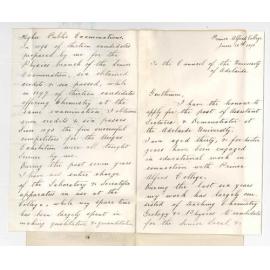 Prince Alfred College
June 12th 1899
To the Council of the University
of Adelaide.
Gentlemen,
I have the honour to
apply for the post of Assistant
Lecturer & Demonstrator at
the Adelaide University.
I am aged thirty, & for
years have been engaged
in educational work in
connection with Prince
Alfred College.
During the last six years
my work has largely con-
sisted of teaching Chemistry
Geology & Physics to candidates
for the Senior Local &
Higher Public Examinations.
In 1898 of thirteen candidates
prepared by me for the
Physics branch of the Senior
Examination, six obtained
credits & six passed, while
in 1897 of thirteen candidates
offering Chemistry at the
same Examination, obtained
seven credits & six passes
Since 1893 the five successful
competitors for the Angas
Exhibition were all taught
Science by me.
During the past seven years
I have had entire charge
of the Laboratory & Scientific
apparatus in use at the
College, while my spare time
has been largely spent in
making qualitative & quantitative